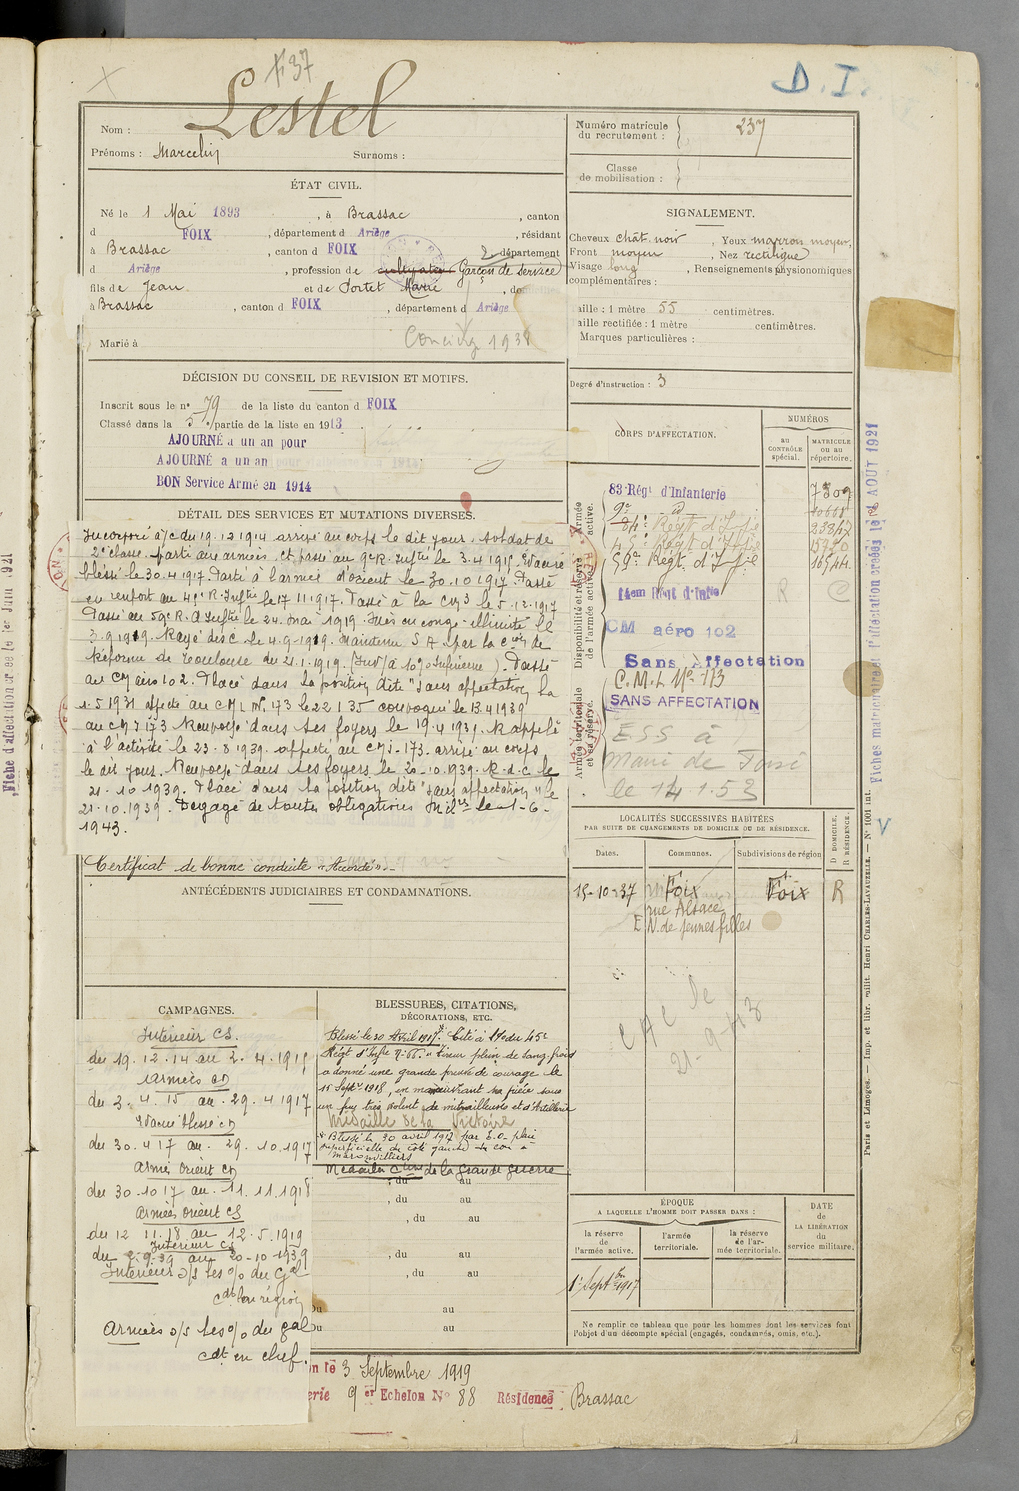 +37
D. I.
Lestel
Nom :
Prénoms : Marcelin Surnoms :
Numéro matricule du recrutement : 237
Classe de mobilisation :
ÉTAT CIVIL.
Né le 1 Mai 1893, à Brassac, canton
d FOIX, département d Ariège, résidant
à Brassac, canton d FOIX, département
d Ariège, profession de cultivateur Garçon de service
fils de Jean et de Portet Marie, do
à Brassac, canton d FOIX, département d Ariège
Marié à
Concierge 1938
SIGNALEMENT.
Cheveux chât. noir, Yeux marron moyen,
Front moyen, Nez rectiligne
Visage long, Renseignements physionomiques
complémentaires :
aille : 1 mètre 55 centimètres.
aille rectifiée : 1 mètre centimètres.
Marques particulières :
Degré d'instruction : 3
DÉCISION DU CONSEIL DE REVISION ET MOTIFS.
Inscrit sous le n° 79 de la liste du canton d FOIX
Classé dans la 5e partie de la liste en 1913
AJOURNÉ a un an pour
AJOURNÉ a un an
BON Service Armé en 1914
CORPS D'AFFECTATION.
NUMÉROS
AU CONTRÔLE spécial.
MATRICULE ou au répertoire.
Armée active.
83e Régt d'Infanterie
9e d
84e Régt d'Infie
45e Régt d'Infie
59e Régt d'Infie 16544
Disponibilité et réserve de l'armée active.
14em Régt d'Infie R
CM aéro 102
Sans Affectation
C. M. L No 173
Armée territoriale et sa réserve.
SANS AFFECTATION
ESS à
Mairie de Foix
le 14.1.53
DÉTAIL DES SERVICES ET MUTATIONS DIVERSES.
Incorporé à/c du 19.12.1914 arrivé au corps le dit jour. Soldat de
2e classe. Parti aux armées et passé au 9e R. Inftie le 3.4.1915. Evacué
blessé le 30.4.1917. Parti à l'armée d'orient le 30.10.1917. Passé
en renfort au 45e R. Inftie le 17.11.1917. Passé à la CM3 le 5.12.1917
Passé au 59e R. d'Inftie le 24. mai 1919. Mis en congé illimité le
3.9.1919. Rayé des C. le 4.9.1919. Maintenu S A par la Con de
Réforme de Toulouse du 21.1.1919. Passé
au CM aéro 102. Placé dans la position dite "sans affectation" la
1.5.1931 affecté au CML No 173 le 22.1.35 convoqué le 13.4.1939
au CML 173 Renvoyé dans ses foyers le 19.4.1939. Rappelé
à l'activité le 23.8.1939. affecté au CML 173. arrivé au corps
le dit jour. Renvoyé dans ses foyers le 20.10.1939. R.d.c le
21.10.1939. Placé dans la position dite "sans affectation" le
21.10.1939. Dégagé de toutes obligations Milres le 1-6-
1943.
Certificat de bonne conduite "Accordé".
ANTÉCÉDENTS JUDICIAIRES ET CONDAMNATIONS.
LOCALITÉS SUCCESSIVES HABITÉES
PAR SUITE DE CHANGEMENTS DE DOMICILE OU DE RÉSIDENCE.
Dates. Communes. Subdivisions de région
D DOMICILE. R RÉSIDENCE.
15-10-37 Foix Foix R
rue Alsace
E.N. de jeunes filles
CAC le
21-9-43
CAMPAGNES.
Intérieur CS
du 19.12.14 au 2.4.1915
Armées CD
du 3.4.15 au 29.4.1917
Evacué blessé CD
du 30.4.17 au 29.10.1917
Armée Orient CD
du 30.10.17 au 11.11.1918
Armée Orient CS
du 12.11.18 au 12.5.1919
Intérieur CS
du 2.9.39 au 20.10.1939
Intérieur s/s les o/o du Gal
Cdt la région
Armées s/s les o/o du gal
Cdt en chef.
BLESSURES, CITATIONS,
DÉCORATIONS, ETC.
Blessé le 30 Avril 1917. Cité à l'O. du 45e
Régt d'Infie No 66. "Tireur plein de sang-froid
a donné une grande preuve de courage le
15 Septre 1918, en manœuvrant sa pièce sous
un feu très violent de mitrailleuses et d'Artillerie
Médaille de la Victoire
Blessé le 30 avril 1917 par E.O. plaie
superficielle du côté gauche du cou à
Maronvilliers
Médaille Commve de la Grande guerre
, du au
, du au
, du au
, du au
, du au
Du au
Du au
ÉPOQUE
A LAQUELLE L'HOMME DOIT PASSER DANS :
la réserve de l'armée active.
l'armée territoriale.
la réserve de l'armée territoriale.
DATE de LA LIBÉRATION du service militaire.
1er Septbre 1917
Ne remplir ce tableau que pour les hommes dont les services font
l'objet d'un décompte spécial (engagés, condamnés, omis, etc.).
n le 3 Septembre 1919
erie 9 er Echelon No 88 Résidence Brassac
Fiches matricule et d'affectation créées le AOUT 1921
Paris et Limoges. — Imp. et libr. milit. Henri CHARLES-LAVAUZELLE. — N° 1001 int.
V